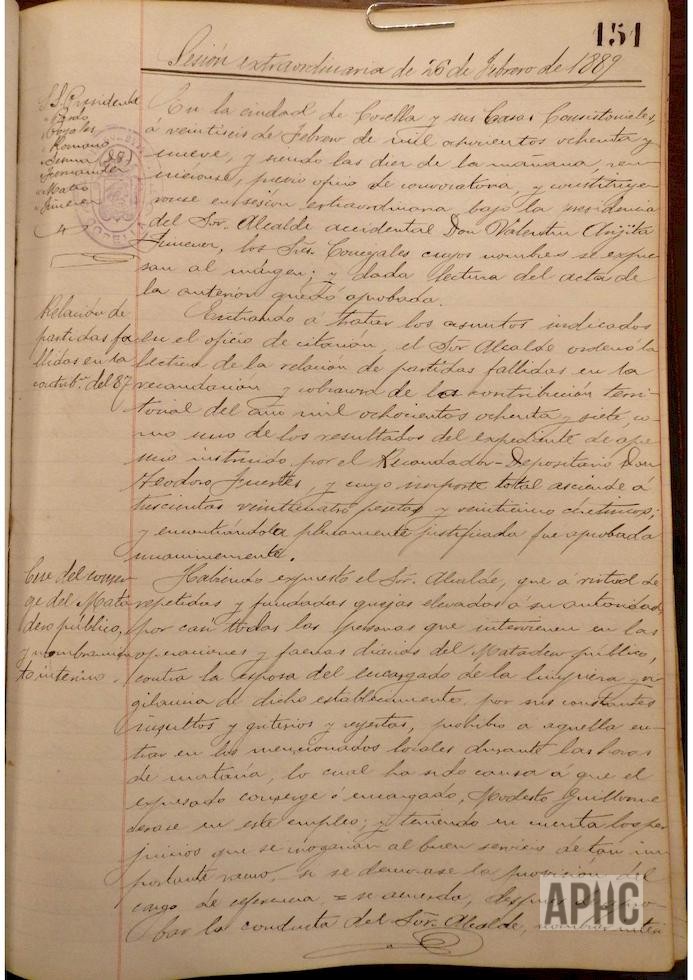 151
Sesión extraordinaria de 26 de Febrero de 1889
S.S. Presidente
Pardo
Royales
Romano
Serna
Fernandez
Mateo
Gimenez
En la ciudad de Corella y sus Casas Consistoriales,
á veintiseis de Febrero de mil ochocientos ochenta y
nueve, y siendo las diez de la mañana, reu-
niéronse, previo oficio de convocatoria, y constituye-
ronse en sesión extraordinaria bajo la presidencia
del Sor. Alcalde accidental Don Valentin Arijita
Jimenez, los Sres. Concejales cuyos nombres se expre-
san al márgen; y dada lectura del acta de
la anterior quedó aprobada.
Relación de
partidas fa
llidas en la
contribn. del 87
Entrando á tratar los asuntos indicados
en el oficio de citación, el Sor. Alcalde ordenó la
lectura de la relación de partidas fallidas en la
recaudación y cobranza de la contribución terri-
torial del año mil ochocientos ochenta y siete, co-
mo uno de los resultados del expediente de apre-
mio instruido por el Recaudador-Depositario Don
Teodoro Fuertes, y cuyo importe total asciende á
trescientas veinticuatro pesetas y veinticinco céntimos;
y encontrándola plenamente justificada fue aprobada
unanimemente.
Cese del conser
ge del Mata
dero público,
y nombramien
to interino.
Habiendo expuesto el Sor. Alcalde, que á virtud de
repetidas y fundadas quejas elevadas á su autoridad,
por casi todas las personas que intervienen en las
operaciones y faenas diarias del Matadero público,
contra la esposa del encargado de la limpieza y vi
gilancia de dicho establecimiento por sus constantes
insultos y griterios y reyertas, prohibio a aquella en-
trar en los mencionados locales durante las horas
de matanza, lo cual ha sido causa á que el
expresado conserge ó encargado, Modesto Guillorme
cesase en este empleo; y teniendo en cuenta los per
juicios que se irrogarian al buen servicio de tan im
portante ramo, si se demorase la provisión del
cargo de referencia, = se acuerda, después de apro-
bar la conducta del Sor. Alcalde,
APHC